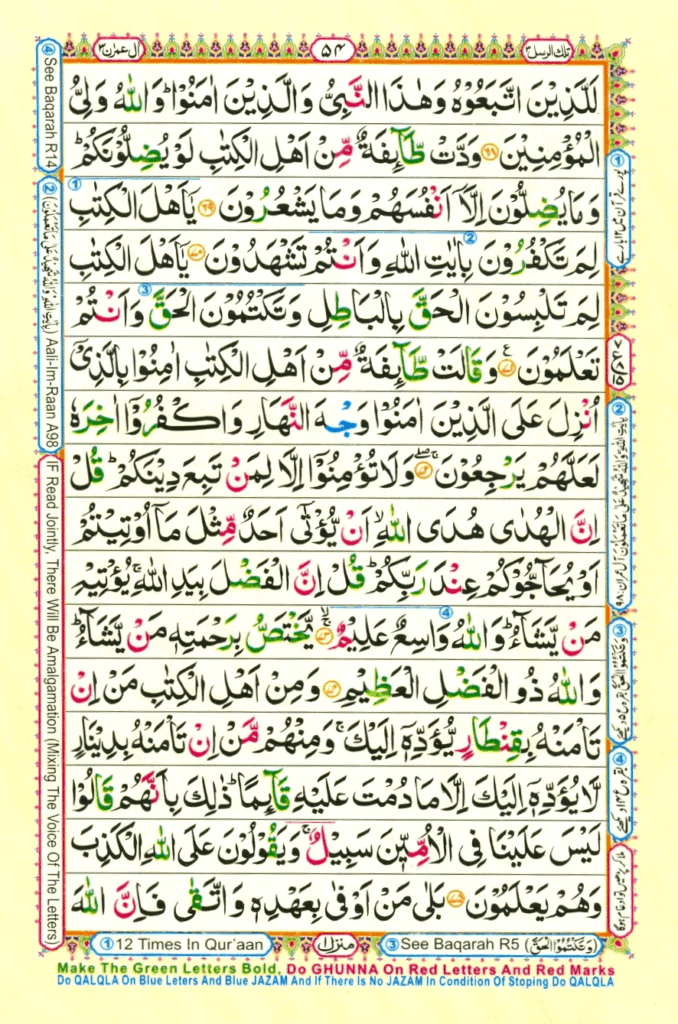 اٰل عمرٰن ٣
٥٤
تلك الرسل ٣
لَلَّذِيْنَ اتَّبَعُوْهُ وَهٰذَا النَّبِىُّ وَالَّذِيْنَ اٰمَنُوْا ؕ وَاللّٰهُ وَلِىُّ
الْمُؤْمِنِيْنَ ﴿۶۸﴾ وَدَّتْ طَّآئِفَةٌ مِّنْ اَهْلِ الْكِتٰبِ لَوْ يُضِلُّوْنَكُمْ ؕ
وَمَا يُضِلُّوْنَ اِلَّاۤ اَنْفُسَهُمْ وَمَا يَشْعُرُوْنَ ﴿۶۹﴾ يٰۤاَهْلَ الْكِتٰبِ
لِمَ تَكْفُرُوْنَ بِاٰيٰتِ اللّٰهِ وَاَنْتُمْ تَشْهَدُوْنَ ﴿۷۰﴾ يٰۤاَهْلَ الْكِتٰبِ
لِمَ تَلْبِسُوْنَ الْحَقَّ بِالْبَاطِلِ وَتَكْتُمُوْنَ الْحَقَّ وَاَنْتُمْ
تَعْلَمُوْنَ ﴿۷۱﴾ ع وَقَالَتْ طَّآئِفَةٌ مِّنْ اَهْلِ الْكِتٰبِ اٰمِنُوْا بِالَّذِىْۤ
اُنْزِلَ عَلَى الَّذِيْنَ اٰمَنُوْا وَجْهَ النَّهَارِ وَاكْفُرُوْۤا اٰخِرَهٗ
لَعَلَّهُمْ يَرْجِعُوْنَ ﴿۷۲﴾ وَلَا تُؤْمِنُوْۤا اِلَّا لِمَنْ تَبِعَ دِيْنَكُمْ ؕ قُلْ
اِنَّ الْهُدٰى هُدَى اللّٰهِ ۙ اَنْ يُّؤْتٰٓى اَحَدٌ مِّثْلَ مَاۤ اُوْتِيْتُمْ
اَوْ يُحَآجُّوْكُمْ عِنْدَ رَبِّكُمْ ؕ قُلْ اِنَّ الْفَضْلَ بِيَدِ اللّٰهِ ۚ يُؤْتِيْهِ
مَنْ يَّشَآءُ ؕ وَاللّٰهُ وَاسِعٌ عَلِيْمٌ ﴿۷۳﴾ يَّخْتَصُّ بِرَحْمَتِهٖ مَنْ يَّشَآءُ ؕ
وَاللّٰهُ ذُو الْفَضْلِ الْعَظِيْمِ ﴿۷۴﴾ وَمِنْ اَهْلِ الْكِتٰبِ مَنْ اِنْ
تَاْمَنْهُ بِقِنْطَارٍ يُّؤَدِّهٖۤ اِلَيْكَ ۚ وَمِنْهُمْ مَّنْ اِنْ تَاْمَنْهُ بِدِيْنَارٍ
لَّا يُؤَدِّهٖۤ اِلَيْكَ اِلَّا مَا دُمْتَ عَلَيْهِ قَآئِمًا ؕ ذٰلِكَ بِاَنَّهُمْ قَالُوْا
لَيْسَ عَلَيْنَا فِى الْاُمِّيّٖنَ سَبِيْلٌ ۚ وَيَقُوْلُوْنَ عَلَى اللّٰهِ الْكَذِبَ
وَهُمْ يَعْلَمُوْنَ ﴿۷۵﴾ بَلٰى مَنْ اَوْفٰى بِعَهْدِهٖ وَاتَّقٰى فَاِنَّ اللّٰهَ
④ See Baqarah R14
② Aali-Im-Raan A98
IF Read Jointly, There Will Be Amalgamation (Mixing The Voice Of The Letters)
① 12 Times In Qur'aan
منزل ١
③ See Baqarah R5 (وَتَكْتُمُوا الْحَقَّ)
Make The Green Letters Bold, Do GHUNNA On Red Letters And Red Marks
Do QALQLA On Blue Leters And Blue JAZAM And If There Is No JAZAM In Condition Of Stoping Do QALQLA